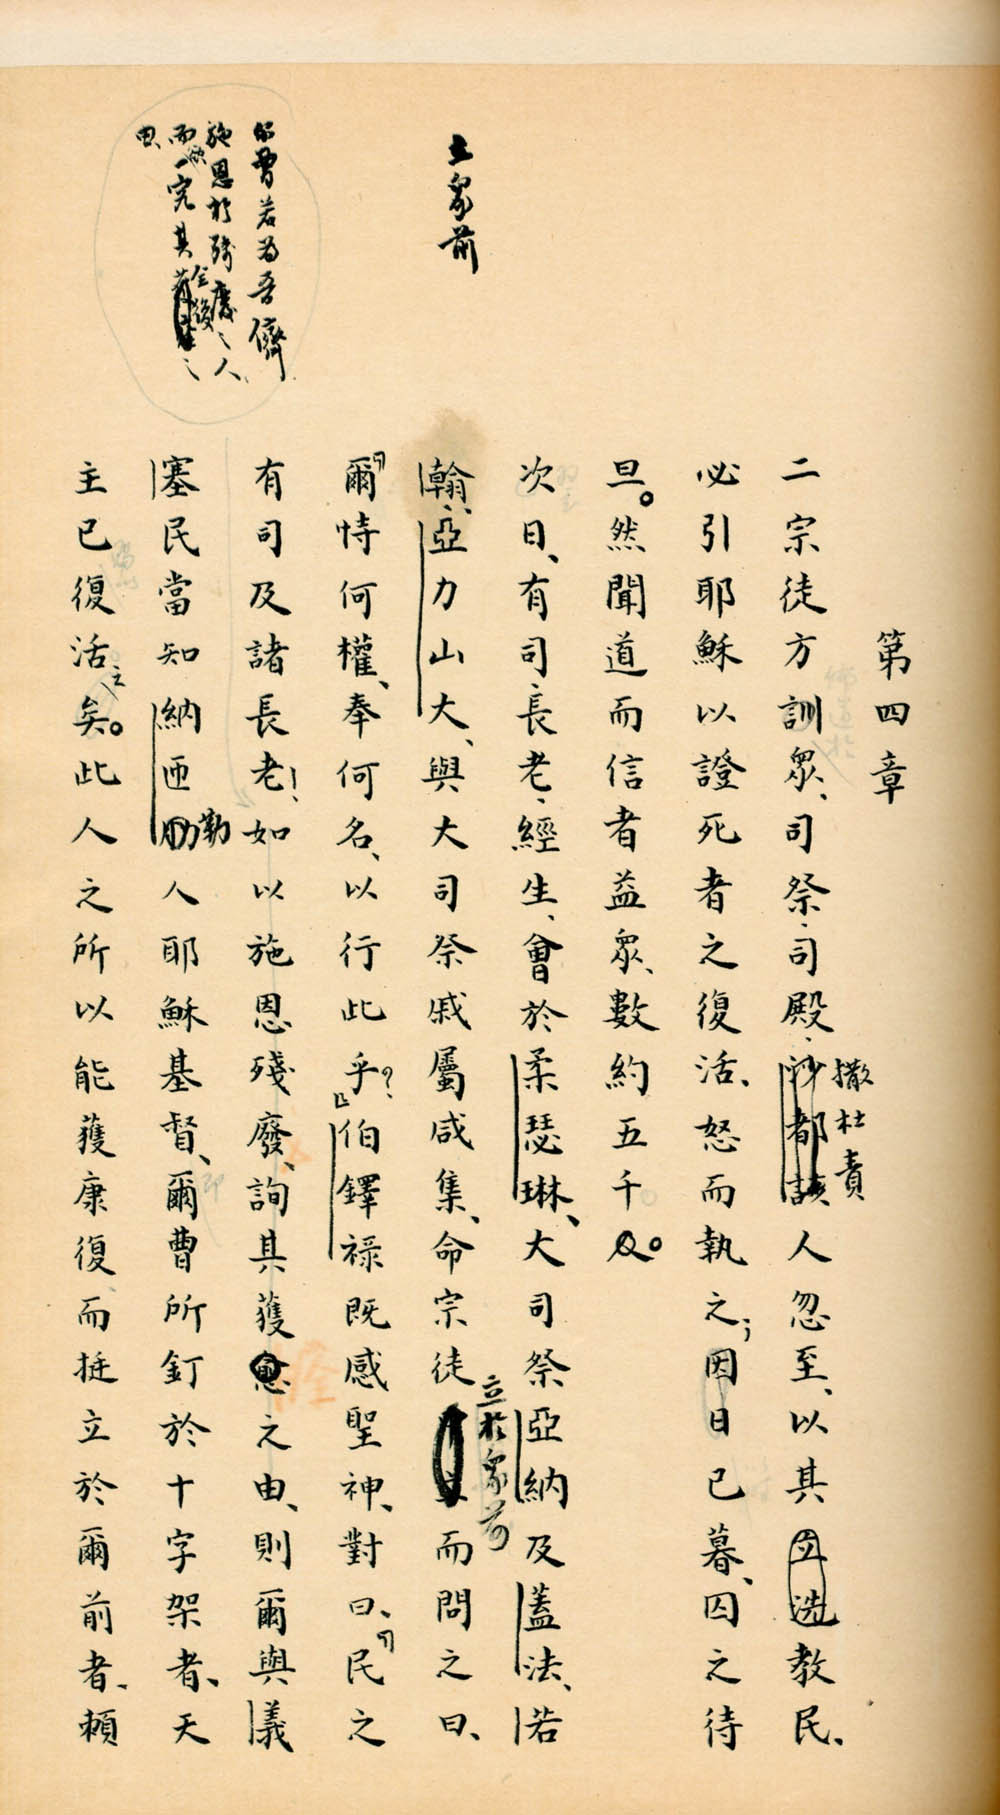 第四章
二宗徒方訓眾、司祭、司殿、沙都該人忽至、以其立迯教民、
撒杜責
必引耶穌以證死者之復活、怒而執之；因日已暮、囚之待
旦。然聞道而信者益眾、數約五千。
次日、有司、長老、經生、會於柔瑟琳、大司祭亞納及蓋法、若
翰、亞力山大、與大司祭戚屬咸集、命宗徒立而問之曰、
立於眾前
立眾前
「爾恃何權、奉何名、以行此乎？」伯鐸祿既感聖神、對曰、「民之
有司及諸長老！如以施恩殘廢、詢其獲愈之由、則爾與義
爾曹若為吾儕
施恩於殘廢之人、
而欲一究其全復之
由、
塞民當知納匝肋人耶穌基督、爾曹所釘於十字架者、天
勒
主已復活之矣。此人之所以能獲康復、而挺立於爾前者、賴